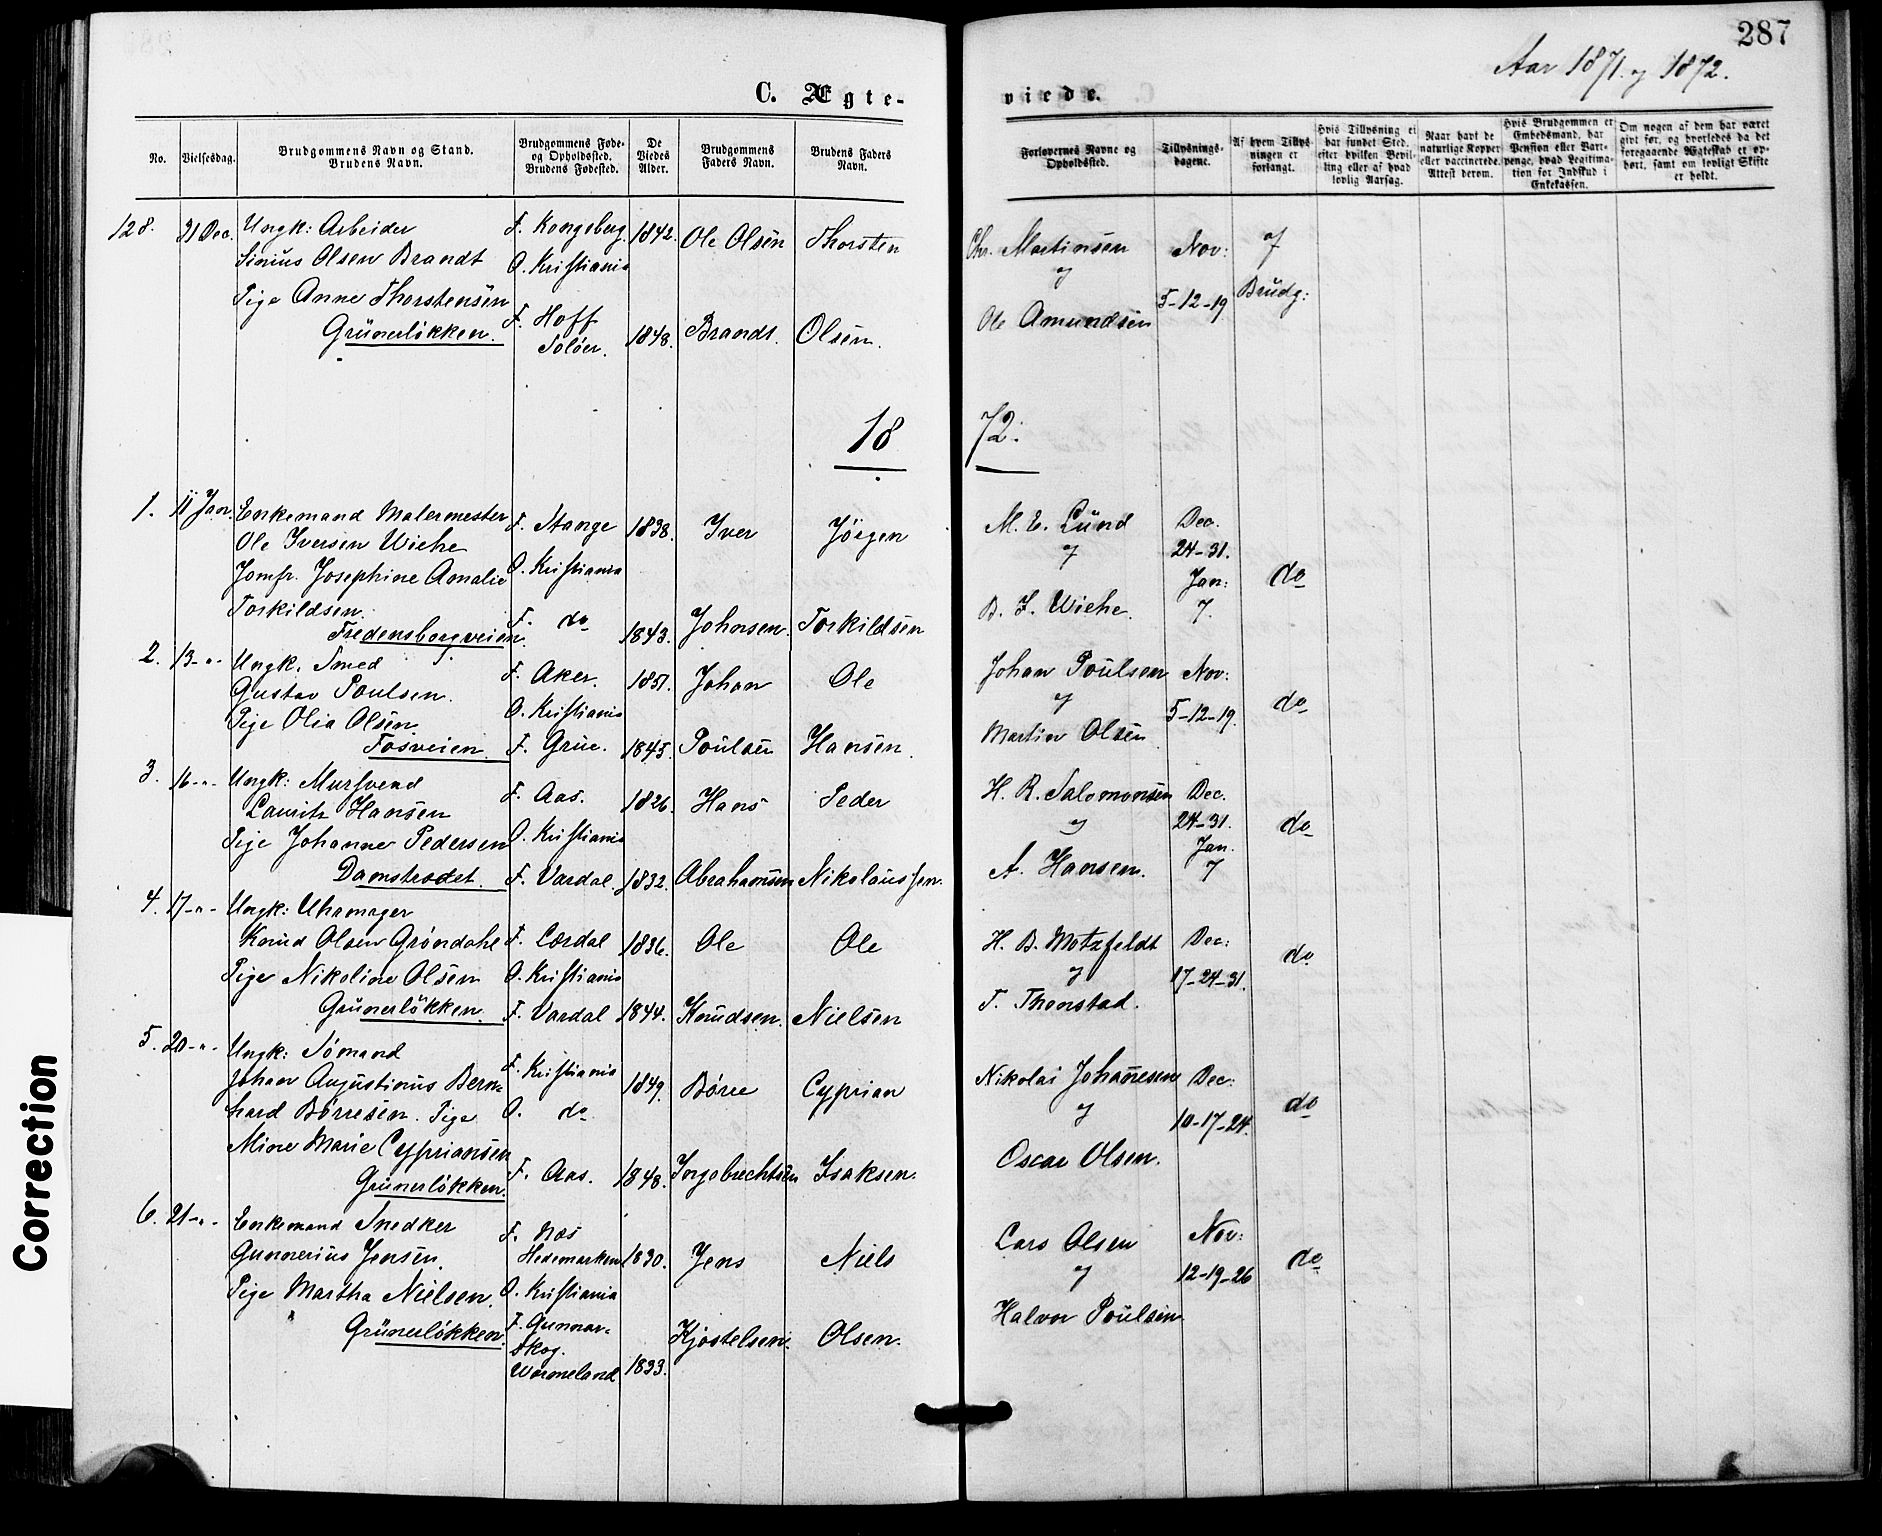 287
Aar 1871. og 1872.
C. Ægte-
viede.
No.
Vielsesdag.
Brudgommens Navn og Stand.
Brudens Navn.
Brudgommens Føde-
og Opholdssted.
Brudens Fødested.
De
Viedes
Alder.
Brudgommens
Faders Navn.
Brudens Faders
Navn.
Forlovernes Navne og
Opholdssted.
Tillysnings-
dagene.
Af hvem Tillys-
ningen er
forlangt.
Hvis Tillysning ei
har fundet Sted.
efter hvilken Bevil-
ling eller af hvad
lovlig Aarsag.
Naar havt de
naturlige Kopper
eller vaccinerede.
Attest derom.
Hvis Brudgommen er
Embedsmand, har
Pension eller Vart-
penge, hvad Legitima-
tion for Indskud i
Enkekassen.
Om nogen af dem har været
gift før, og hvorledes da det
foregaaende Ægteskab er op-
hørt, samt om lovligt Skifte
er holdt.
128. 31 Dec. Ungk: Arbeider F. Kongsberg. 1842. Ole Olsen Thorsten Chr. Martinsen Nov: af
Sinius Olsen Brandt O. Kristiania og
Pige Anne Thorstensen 5-12-19 Brudg:
Grünerløkken. F. Hoff Soløer. 1848. Brandt. Olsen. Ole Amundsen
18 72.
1. 11 Jan. Enkemand Malermester F. Stange 1838. Iver Jörgen M. E. Lund Dec.
Ole Iversen Wiehe og 24-31.
Jomfr. Josephine Amalie O. Kristiania Jan: do
Torkildsen. B. I. Wiehe. 7.
Fredensborgveien. F. do 1843. Johnsen. Torkildsen
2. 13-"- Ungk. Smed F. Aker. 1851. Johan Ole Johan Poulsen Nov:
Gustav Poulsen. O. Kristiania og do
Pige Olia Olsen. 5-12-19.
Fosveien. F. Grue. 1845. Poulsen Hansen. Martin Olsen
3. 16-"- Ungk: Mursvend F. Aas. 1826. Hans Peder H. R. Salomonsen Dec.
Lauritz Hansen og 24-31. do
Pige Johanne Pedersen O. Kristiania Jan.
Damstredet. F. Vardal. 1832. Abrahamsen Nikolaussen. A. Hansen. 7
4. 17-"- Ungk: Uhrmager
Knud Olsen Gröndahl F. Lærdal 1836. Ole Ole H. B. Motzfeldt Dec: do
Pige Nikoline Olsen O. Kristiania og 17-24-31.
Grünerløkken. F. Vardal 1844. Knudsen. Nielsen T. Thonstad.
5. 20-"- Ungk: Sömand F. Kristiania
Johan Augustinus Bern= 1849. Börre Cyprian Nikolai Johannesen Dec:
hard Börresen. Pige O. do og 10-17-24. do
Mine Marie Cypriansen
Grünerløkken. F. Aas. 1848. Ingebrechtsen Isaksen. Oscar Olsen.
6. 21-"- Enkemand Snedker F. Næs Nov:
Gunnerius Jensen. Hedemarken 1830. Jens Niels Lars Olsen do
Pige Martha Nielsen. O. Kristiania og 12-19-26
Grünerløkken. F. Gunnar= Kjostelsen. Olsen. Halvor Poulsen
skog.
Wärmeland 1833.
Correction